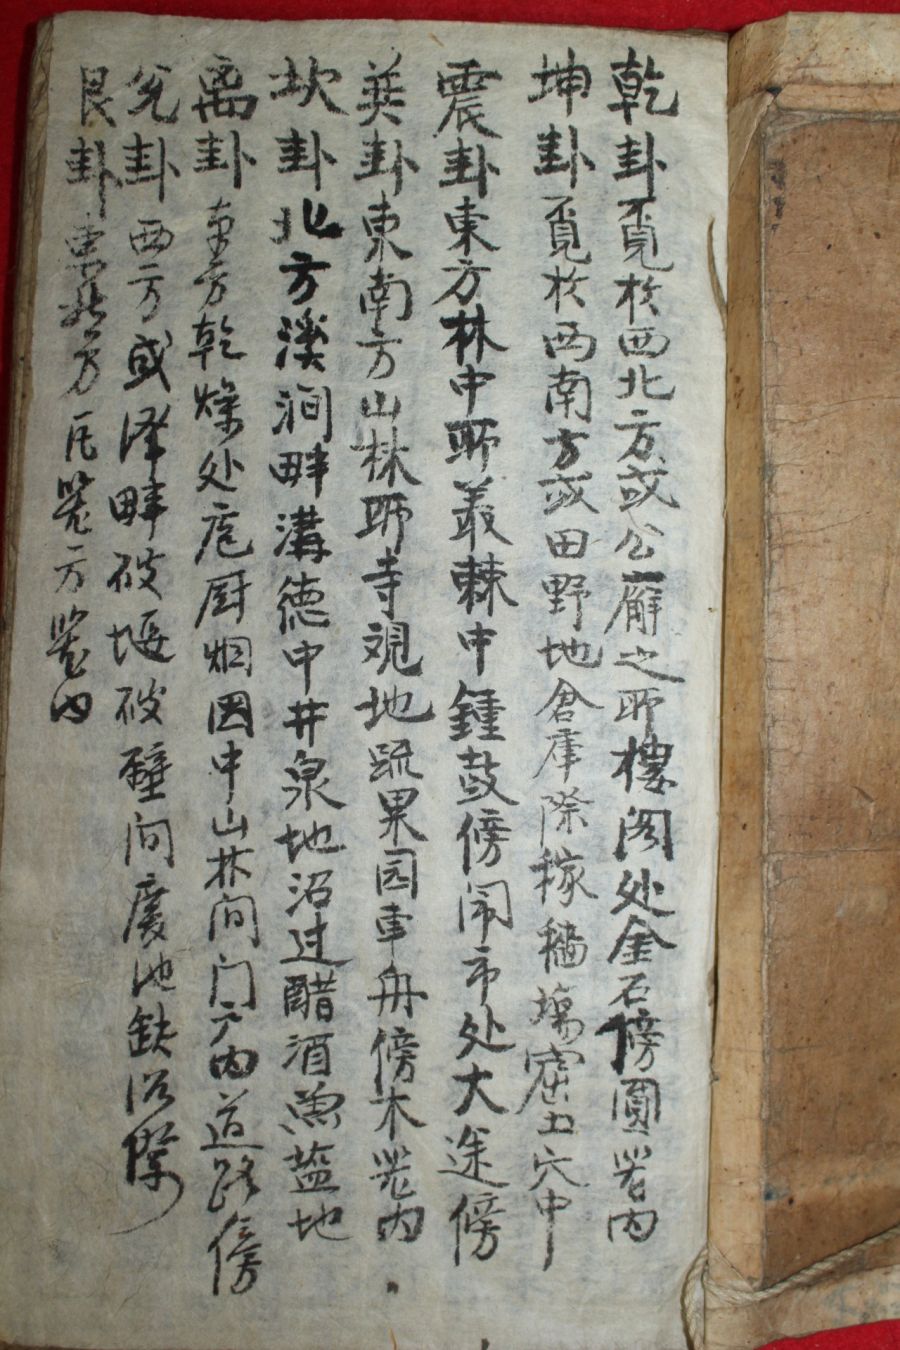 乾卦覓於西北方或公廨之所樓阁处金石傍圓器内
坤卦覓於西南方或田野地倉庫除稼穡塲窟土穴中
震卦東方林中所叢棘中鍾鼓傍鬧市处大途傍
巽卦東南方山林所寺观地蔬果园車舟傍木器内
坎卦北方溪澗畔溝德中井泉地沼过醋酒魚盐地
离卦南方乾燥处庖厨烟囱中山林间门户内道路傍
兌卦西方或泽畔破堰破壁间废池缺
艮卦東北方瓦器方器内